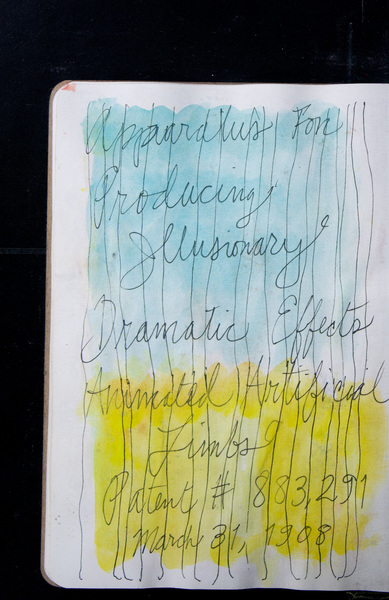 Apparatus For
Producing
Illusionary
Dramatic Effects
Animated Artificial
Limbs
Patent # 883,291
March 31, 1908